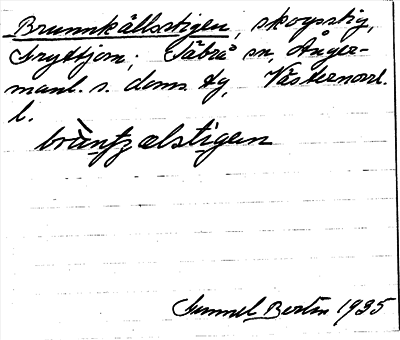 Brunnkällsstigen, skogsstig,
Frydtjom; Säbrå sn, Ånger-
manl. s. doms. dg, Västernorrl.
l.
Gunnel Bertin 1935